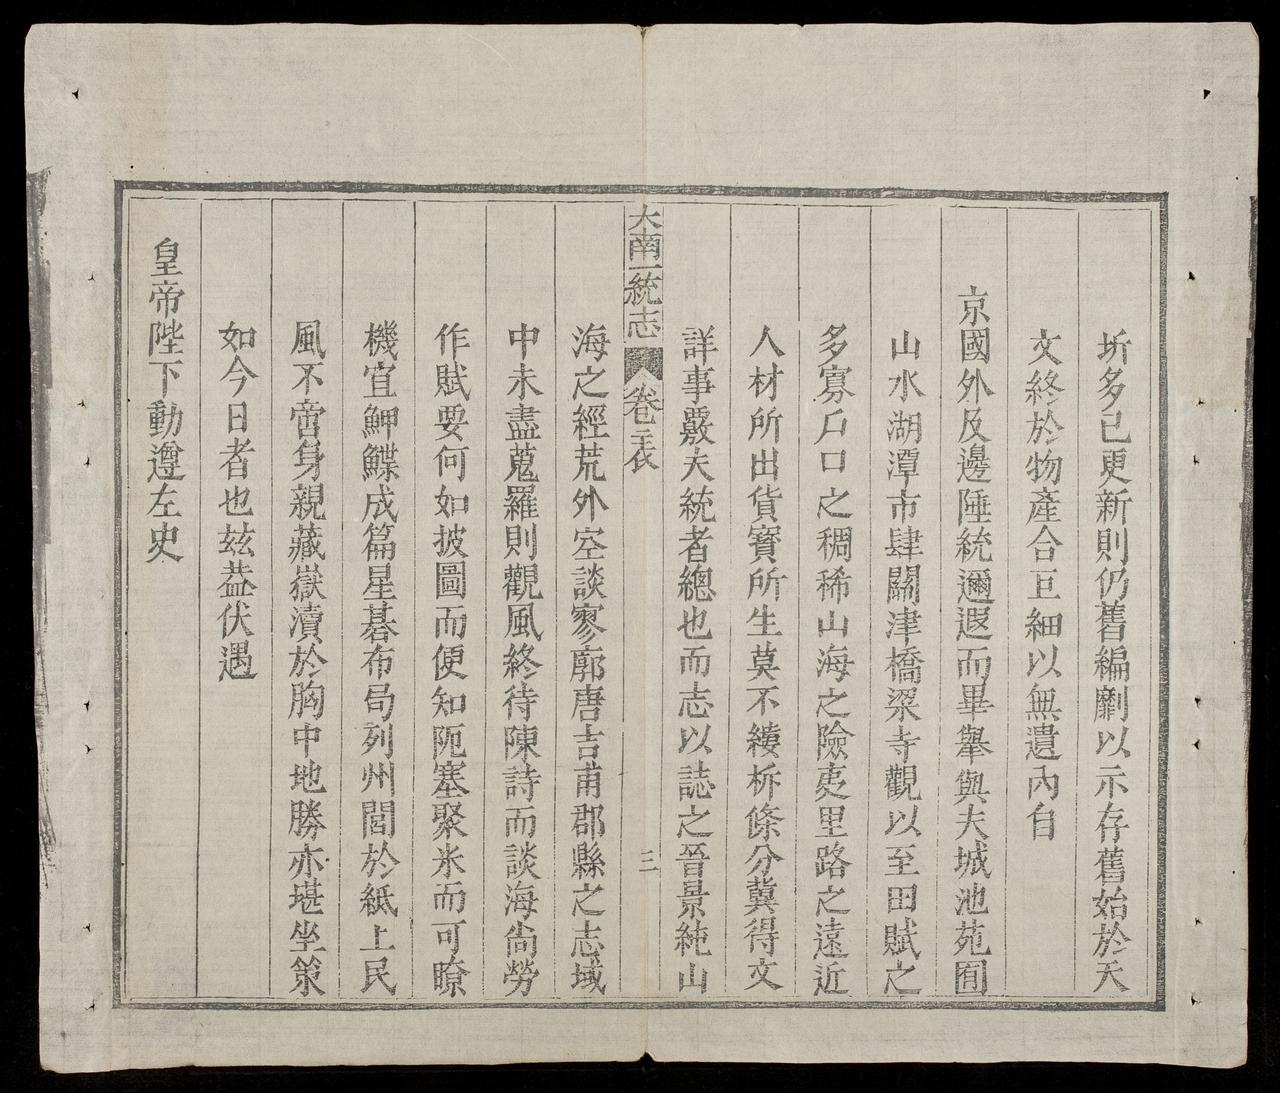 圻多已更新則仍舊編劘以示存舊始於天
文終於物產合巨細以無遺內自
京國外及邊陲統邇遐而畢舉與夫城池苑囿
山水湖潭市肆關津橋梁寺觀以至田賦之
多寡戶口之稠稀山海之險夷里路之遠近
人材所出貨寶所生莫不縷柝條分冀得文
詳事覈夫統者總也而志以誌之晉景純山
大南一統志 卷二表 三
海之經荒外空談寥廓唐吉甫郡縣之志域
中未盡蒐羅則觀風終待陳詩而談海尙勞
作賦要何如披圖而便知阨塞聚米而可瞭
機宜鯽鰈成篇星碁布局列州閭於紙上民
風不啻身親藏嶽瀆於胸中地勝亦堪坐策
如今日者也玆葢伏遇
皇帝陛下動遵左史